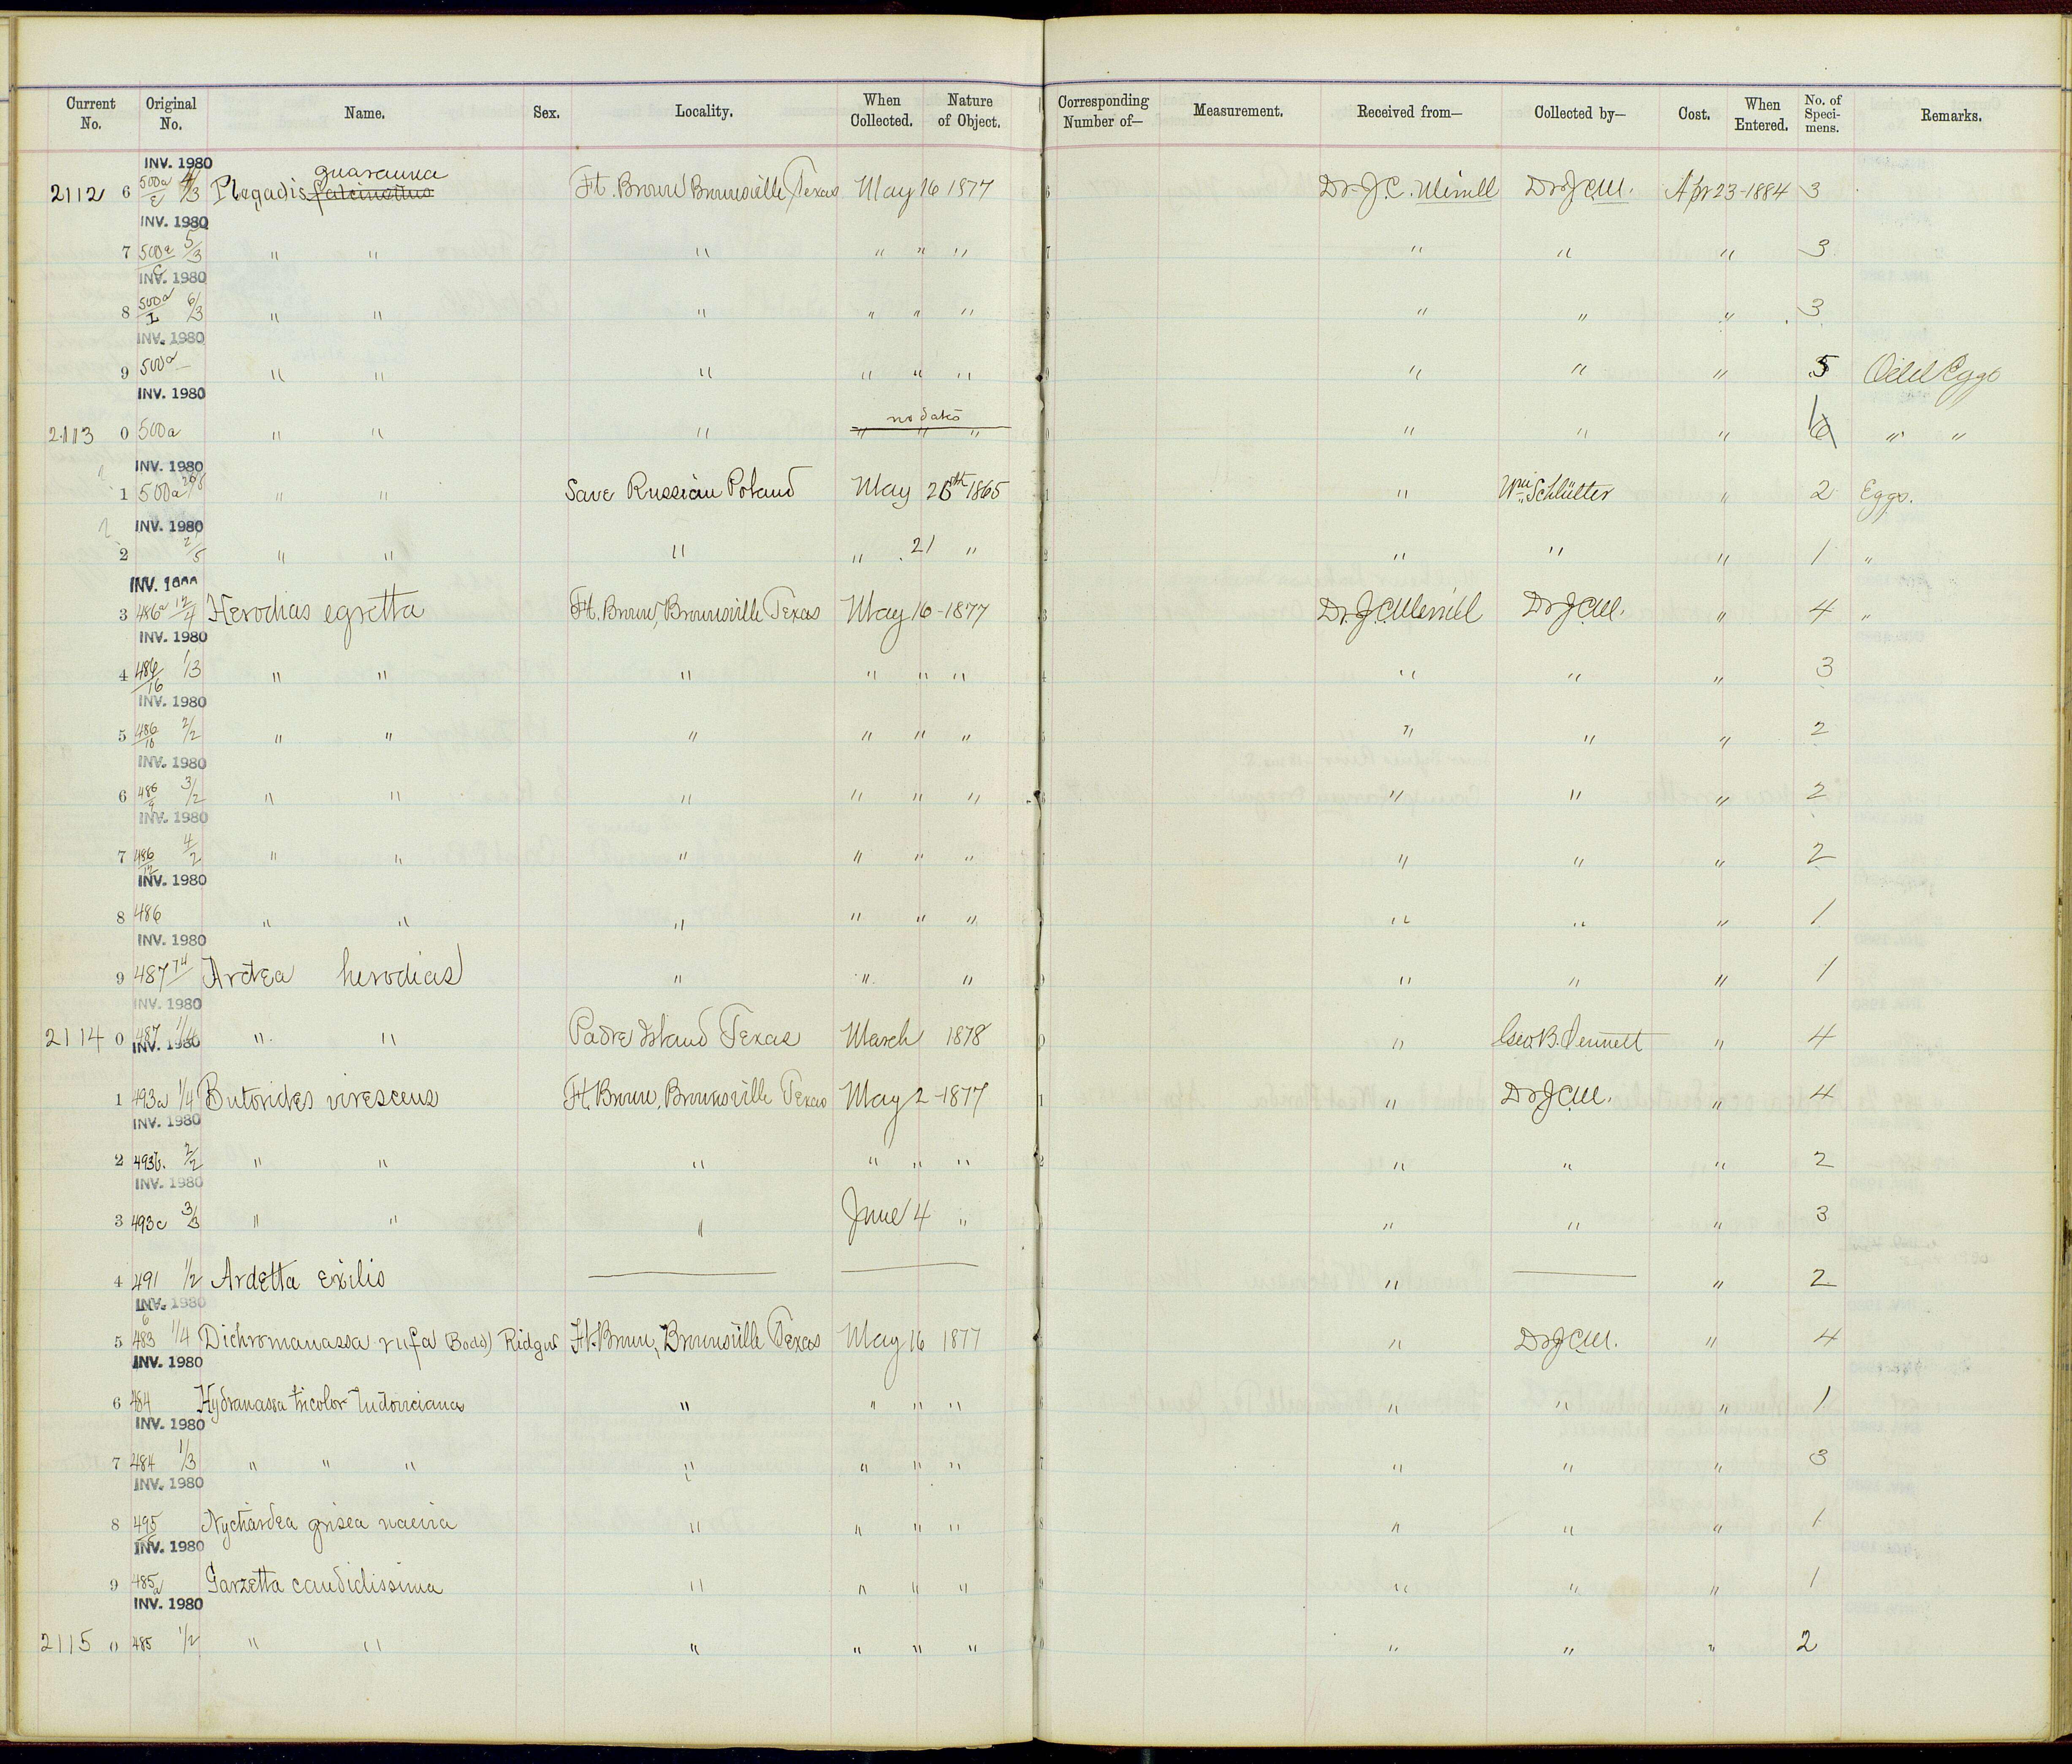 Current No. Original No. Name. Sex. Locality. When Collected. Nature of Object. Corresponding Number of— Measurement. Received from— Collected by— Cost. When Entered. No. of Specimens. Remarks.
INV. 1980
guarauna
2112 6 500a 4/3 Plegadis falcinellus Ft. Brown Brownsville Texas May 16 1877 Dr. J. C. Merrill Dr J C M. Apr 23-1884 3
INV. 1980
7 500a 5/3 " " " " " " " " " 3
INV. 1980
8 500a 6/3 " " " " " " " " " 3
INV. 1980
9 500a " " " " " " " " " 5 Odd Eggs
INV. 1980
no date
2113 0 500a " " " " " " " " " " "
INV. 1980
1 500a " " Save Russian Poland May 1865 " Wm. Schlüter " 2 Eggs.
INV. 1980
2 2/5 " " " " 21 " " " " 1 "
INV. 1980
3 486a 12/4 Herodias egretta Ft. Brown, Brownsville Texas May 16-1877 Dr. J. C. Merrill Dr J C M. " 4 "
INV. 1980
4 486/16 1/3 " " " " " " " " " 3
INV. 1980
5 486/18 2/2 " " " " " " " " " 2
INV. 1980
6 486/9 3/2 " " " " " " " " " 2
INV. 1980
7 486/12 4/2 " " " " " " " " " 2
INV. 1980
8 486 " " " " " " " " " 1
INV. 1980
9 487 Ardea herodias " " " " " " 1
INV. 1980
2114 0 487 1/4 " " Padre Island Texas March 1878 " Geo. B. Sennett " 4
INV. 1980
1 493a 1/4 Butorides virescens Ft. Brown, Brownsville Texas May 2-1877 " Dr J C M. " 4
INV. 1980
2 493b. 2/2 " " " " " " " " " 2
INV. 1980
3 493c 3/3 " " " June 4 " " " " 3
4 491 1/2 Ardetta exilis — — " — " 2
INV. 1980
5 483 1/4 Dichromanassa rufa Bodd) Ridgw Ft. Brown, Brownsville Texas May 16 1877 " Dr J C M. " 4
INV. 1980
6 484 Hydranassa tricolor ludoviciana " " " " " " " 1
INV. 1980
7 484 1/3 " " " " " " " " " " 3
INV. 1980
8 495 Nyctiardea grisea naevia " " " " " " " 1
INV. 1980
9 485a Garzetta candidissima " " " " " " " 1
INV. 1980
2115 0 485 1/2 " " " " " " " " " 2